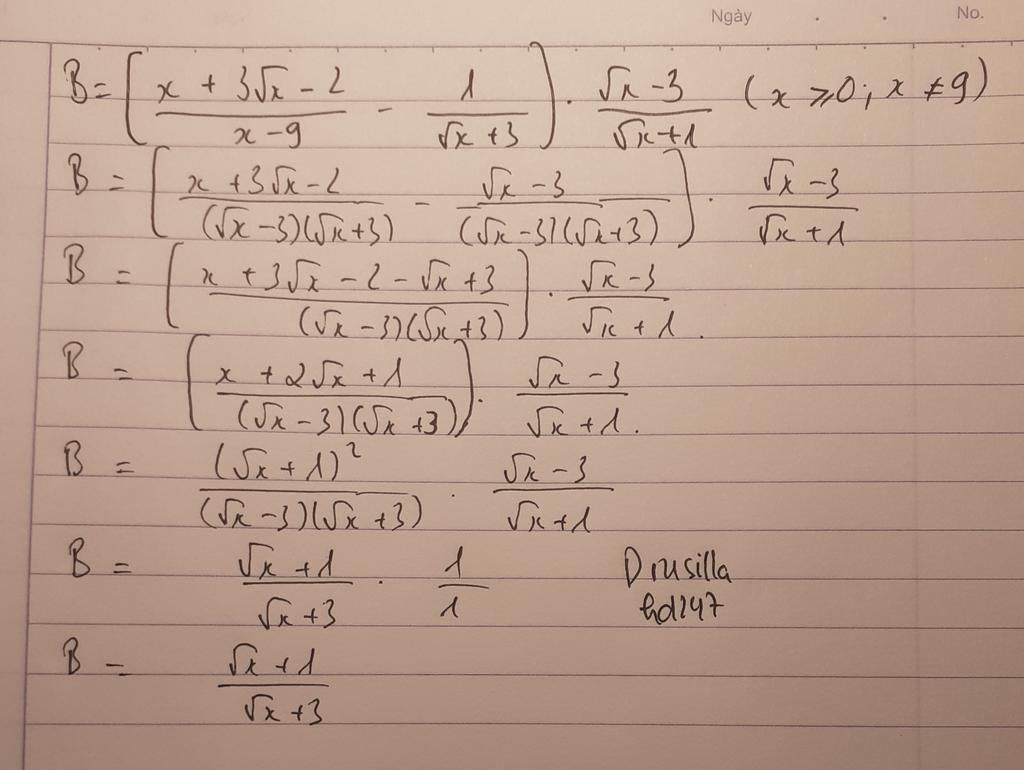 Ngày . . No.
B = [(x + 3√x - 2)/(x - 9) - 1/(√x + 3)] . (√x - 3)/(√x + 1) (x ⩾ 0; x ≠ 9)
B = [(x + 3√x - 2)/((√x - 3)(√x + 3)) - (√x - 3)/((√x - 3)(√x + 3))] . (√x - 3)/(√x + 1)
B = [(x + 3√x - 2 - √x + 3)/((√x - 3)(√x + 3))] . (√x - 3)/(√x + 1).
B = [(x + 2√x + 1)/((√x - 3)(√x + 3))] . (√x - 3)/(√x + 1).
B = (√x + 1)²/((√x - 3)(√x + 3)) . (√x - 3)/(√x + 1)
B = (√x + 1)/(√x + 3) . 1/1 Drusilla
hd247
B = (√x + 1)/(√x + 3)